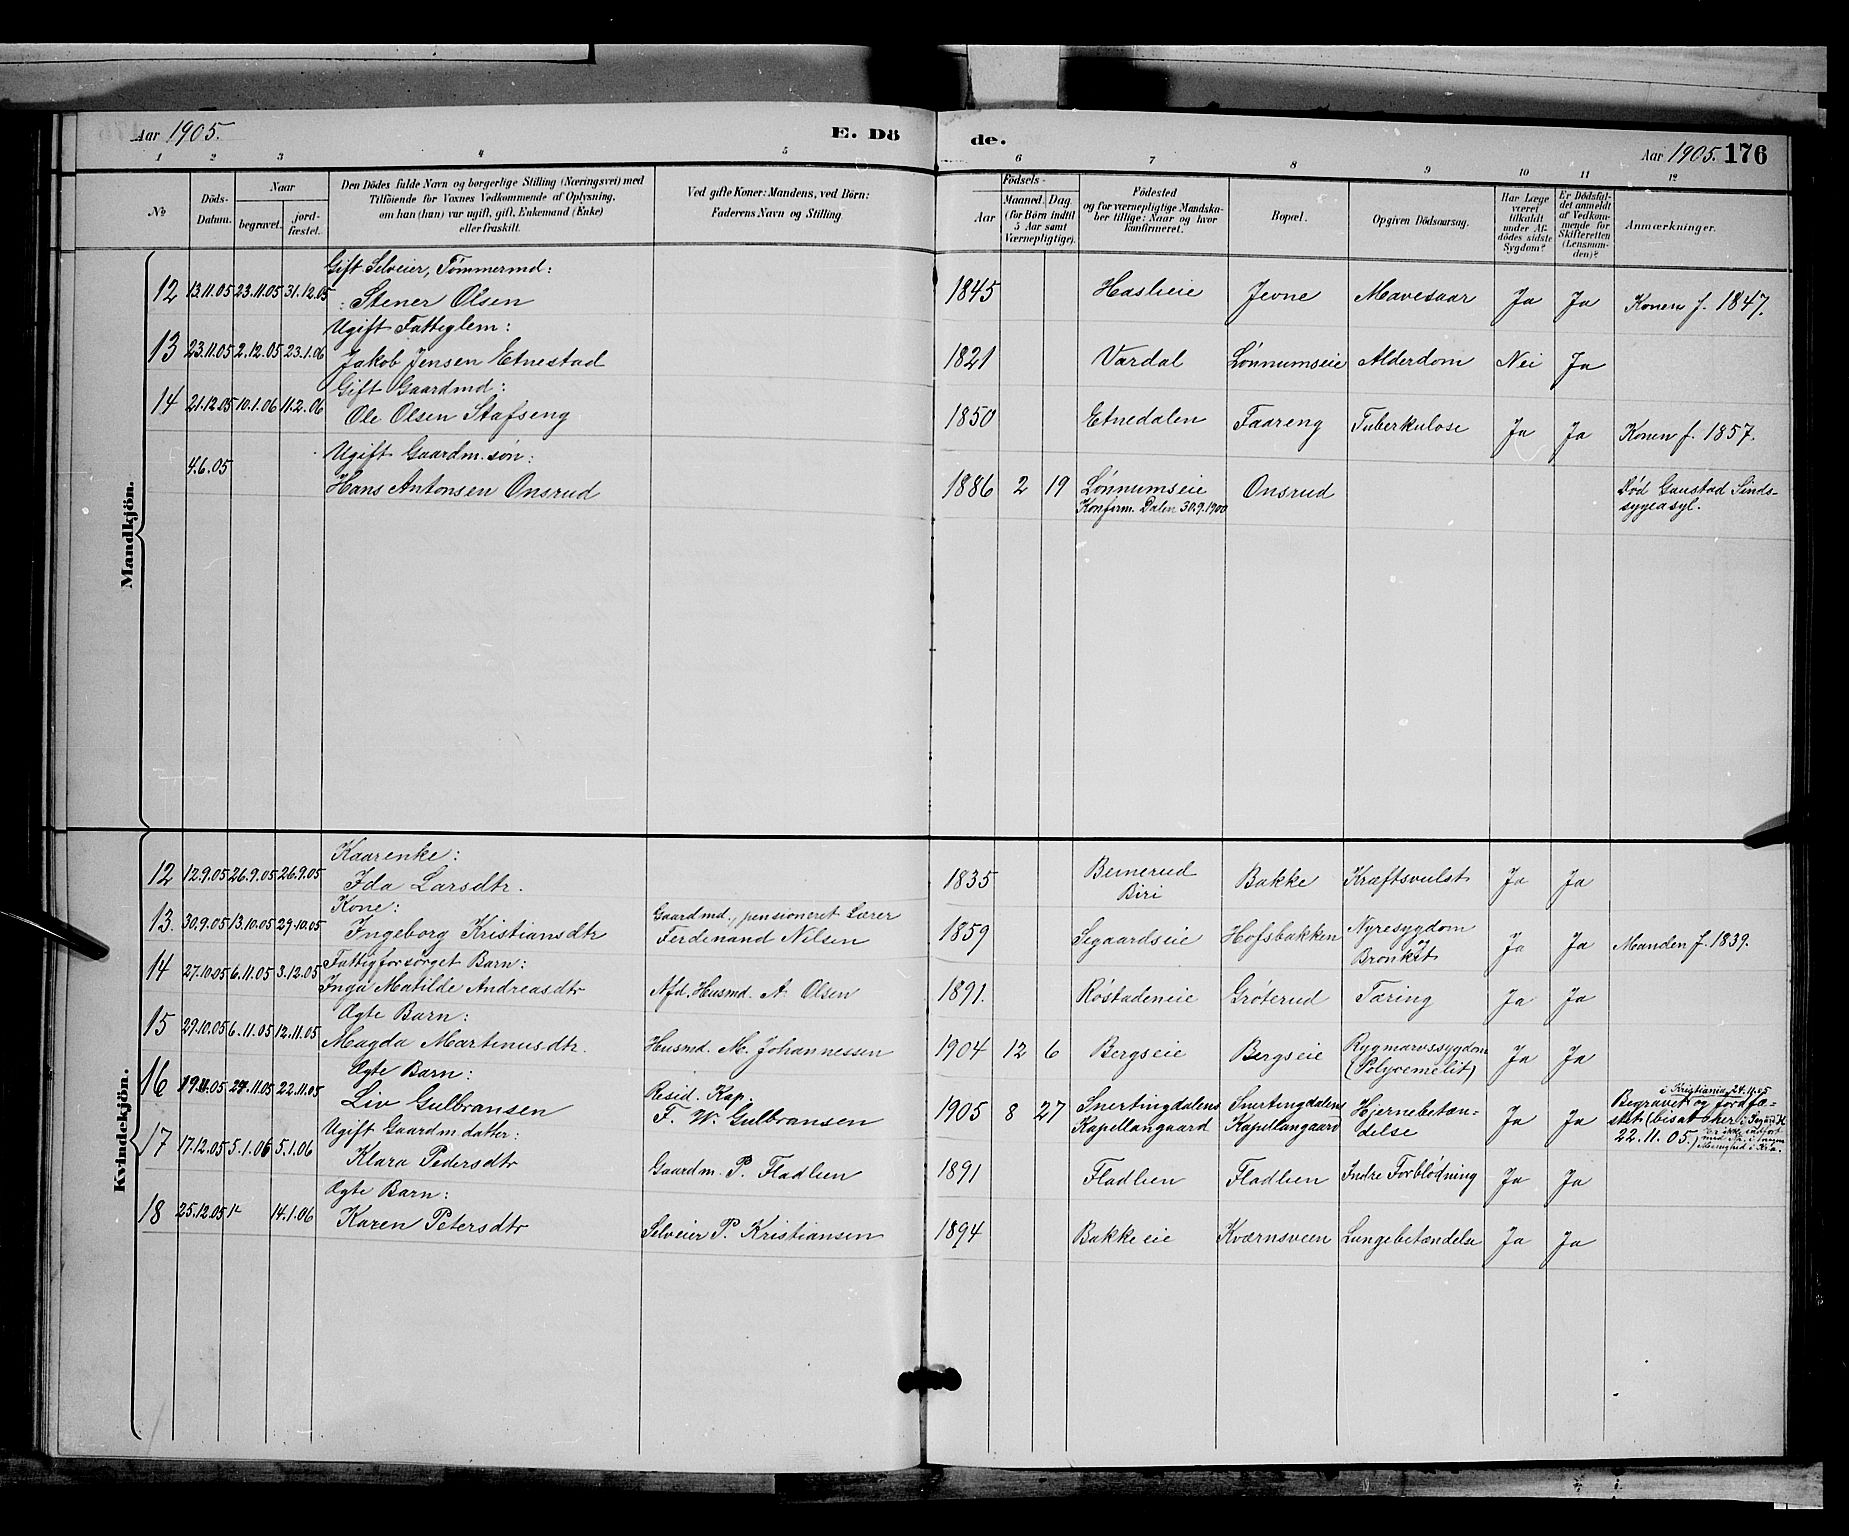 Aar 1905. E. Dö de. Aar 1905. 176
1 2 3 4 5 6 7 8 9 10 11 12
№
Döds-
Datum.
Naar
begravet.
jord-
fæstet.
Den Dödes fulde Navn og borgerlige Stilling (Næringsvei) med
Tilföiende for Voxnes Vedkommende af Oplysning,
om han (hun) var ugift, gift, Enkemand (Enke)
eller fraskilt.
Ved gifte Koner: Mandens, ved Börn:
Faderens Navn og Stilling.
Födsels-
Aar
Maaned. Dag.
(for Börn indtil
5 Aar samt
Værnepligtige).
Födested
og for værnepligtige Mandska-
ber tillige: Naar og hvor
konfirmeret.
Bopæl.
Opgiven Dödsaarsag.
Har Læge
været
tilkaldt
under Af-
dödes sidste
Sygdom?
Er Dödsfal-
det anmeldt
af Vedkom-
mende for
Skifteretten
(Lensman-
den)?
Anmærkninger.
Mandkjön.
Gift Selveier, Tømmermd:
12 13.11.05 23.11.05 31.12.05 : Stener Olsen 1845 Haslieie Jevne Mavesaar Ja Ja Konen f. 1847.
Ugift Fattiglem:
13 23.11.05 2.12.05 23.1.06 Jakob Jensen Etnestad 1821 Vardal Lønnumseie Alderdom Nei Ja
Gift Gaardmd:
14 21.12.05 10.1.06 11.2.06 Ole Olsen Stafseng 1850 Etnedalen Faareng Tuberkulose Ja Ja Konen f. 1857.
Ugift Gaardm. søn:
4.6.05 Hans Antonsen Onsrud 1886 2 19 Lønnumseie Onsrud Død Gaustad Sinds-
Konfirm. Dalen 30.9.1900 sygeasyl.
Kvindekjön.
Kaarenke:
12 12.9.05 26.9.05 26.9.05 Ida Larsdtr. 1835 Bernerud Bakke Kræftsvulst Ja Ja
Biri
Kone: Gaardmd., pensioneret Lærer
13. 30.9.05 13.10.05 29.10.05 Ingeborg Kristiansdtr Ferdinand Nilsen 1859 Segaardseie Hofsbakken Nyresygdom Ja Ja Manden f. 1839.
og
Bronkit
Fattigforsørget Barn:
14 27.10.05 6.11.05 3.12.05 Inga Matilde Andreasdtr Afd. Husmd. A. Olsen 1891. Røstadeneie Grøterud Tæring Ja Ja
Ægte Barn:
15 29.10.05 6.11.05 12.11.05 Magda Martinusdtr. Husmd. M. Johannessen 1904 12 6 Bergseie Bergseie Rygmarvssygdom Ja Ja
(Polyoemelit)
Ægte Barn: Resid. Kap. i Kristiania 24.11.05
16 19.11.05 24.11.05 22.11.05 Liv Gulbransen F. W. Gulbransen 1905 8 27 Snertingdalens Snertingdalens Hjernebetæn- Ja Ja Begravet og jordfæ-
Kapellangaard Kapellangaard delse stet (bisat her
22.11.05)
Ugift Gaardm. datter:
17 17.12.05 5.1.06 5.1.06 Klara Pedersdtr Gaardm. P. Fladlien 1891 Fladlien Fladlien Indre Forblødning Ja Ja
Ægte Barn:
18 25.12.05 14.1.06 Karen Petersdtr Selveier P. Kristiansen 1894 Bakkeeie Kværnsveen Lungebetændelse Ja Ja